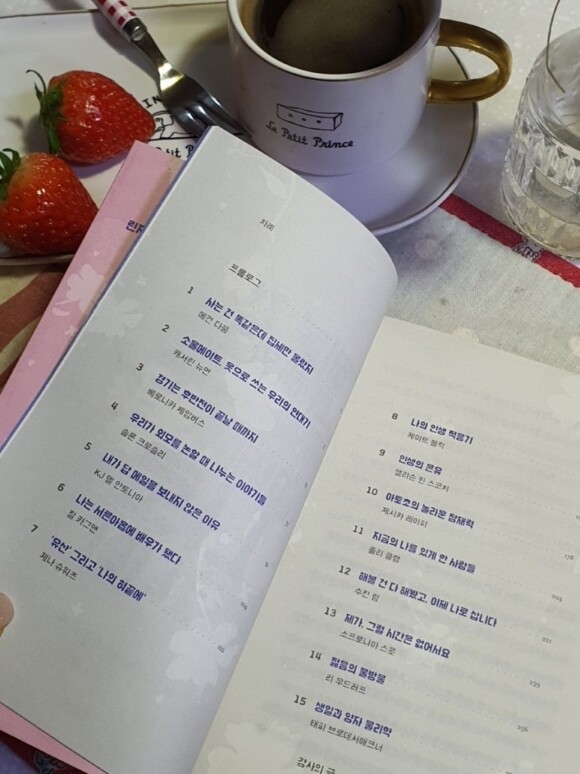 Le Petit Prince
차례
프롤로그
1 사는 건 똑같은데 집세만 올랐지
메건 다움
2 소울메이트, 옷으로 쓰는 우리의 연대기
캐서린 뉴먼
3 경기는 후반전이 끝날 때까지
베로니카 체임버스
4 우리가 외모를 논할 때 나누는 이야기들
슬론 크로슬리
5 내가 답 메일을 보내지 않은 이유
KJ 델 안토니아
6 나는 서른아홉에 배우가 됐다
질 카그먼
7 '유산' 그리고 '나의 허끝에'
제나 슈워츠
8 나의 인생 적응기
케이트 볼릭
9 인생의 큰유
앨리슨 윈 스코치
10 아토초의 놀라운 잠재력
제시카 레이히
11 지금의 나를 있게 한 사람들
줄리 클램
12 해볼 건 다 해봤고, 이제 나로 삽니다
수진 림
13 제가, 그럴 시간은 없어서요
소프로니아 스콧
14 젊음의 불방울
리 우드러프
15 생일과 양자 물리학
태피 브로데서애크너
감사의 글